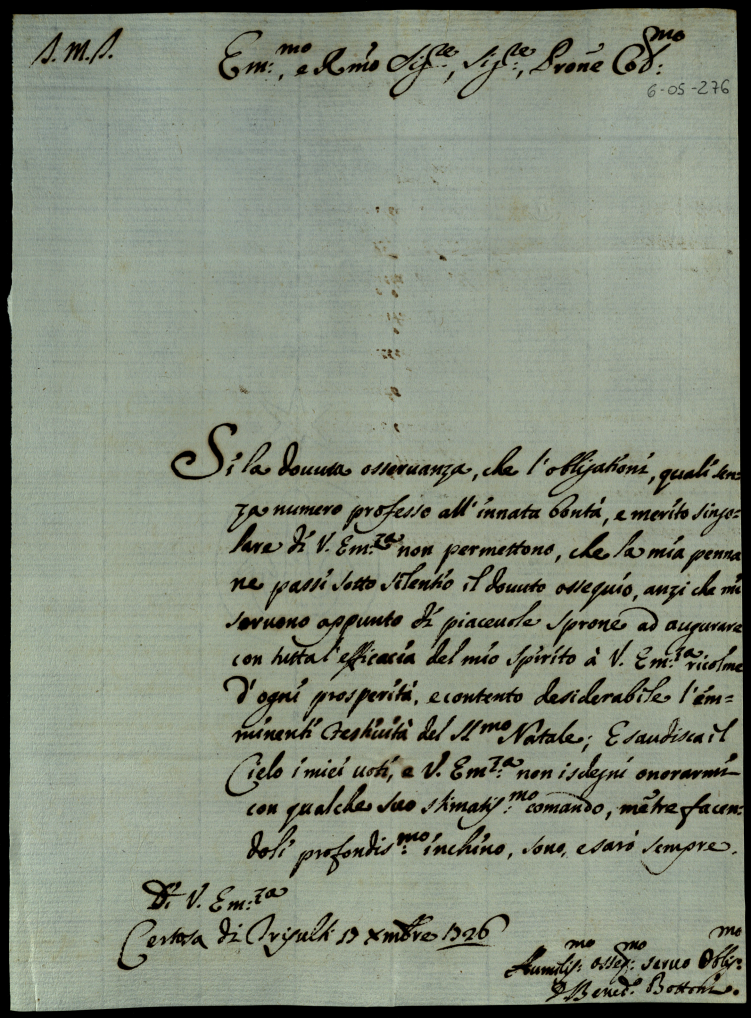 Em:mo, e Rmo Sigre, Sigre, Prone Col:mo
6-05-276
Si la douuta osseruanza, che l'obligationi, quali sen
za numero professo all'innata bontà, e merito singo=
lare di V. Em:za non permettono, che la mia penna
ne passi sotto silentio il douuto ossequio, anzi che mi
seruono appunto di piaceuole sprone ad augurare
con tutta l'efficacia del mio spirito à V. Em:za ricolme
d'ogni prosperità, e contento desiderabile l'em=
minenti festiuità del SSmo Natale; Esaudisca il
Cielo i miei uoti, e V. Em:za non isdegni onorarmi
con qualche suo stimatis:mo comando, mẽtre facen=
doli profondis:mo inchino, sono, e sarò sempre.
Di V. Em:za
Certosa di Trisulti Xmbre 1726
Humilis:mo osseq:mo seruo Oblig:mo
D Bened:o Bottoni.